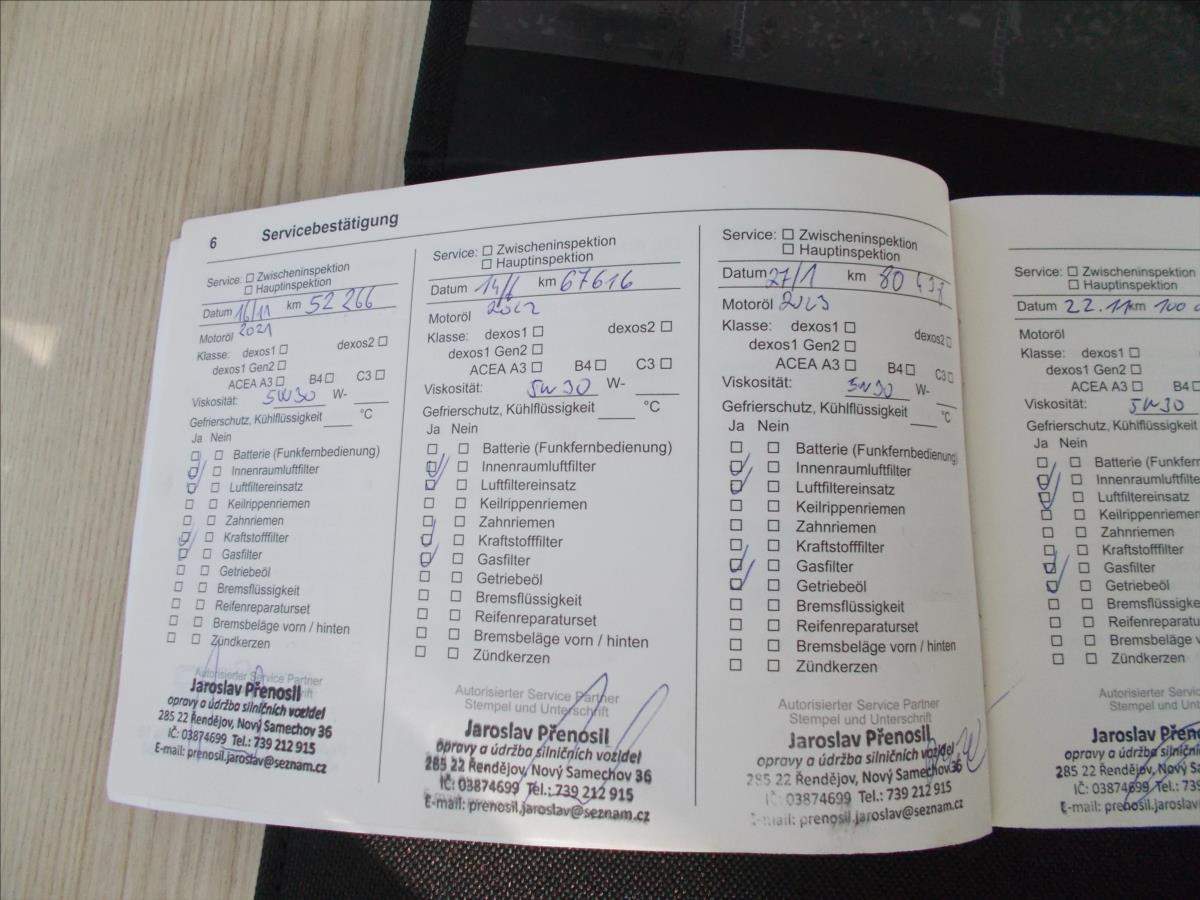 6 Servicebestätigung
Service: ☐ Zwischeninspektion
☐ Hauptinspektion
Datum 16/11 km 52 266
Motoröl 2021
Klasse: dexos1 ☐ dexos2 ☐
dexos1 Gen2 ☐
ACEA A3 ☐ B4 ☐ C3 ☐
Viskosität: 5W30 W-
Gefrierschutz, Kühlflüssigkeit °C
Ja Nein
Batterie (Funkfernbedienung)
Innenraumluftfilter
Luftfiltereinsatz
Keilrippenriemen
Zahnriemen
Kraftstofffilter
Gasfilter
Getriebeöl
Bremsflüssigkeit
Reifenreparaturset
Bremsbeläge vorn / hinten
Zündkerzen
Autorisierter Service Partner
Jaroslav Přenosil
opravy a údržba silničních vozidel
285 22 Řendějov, Nový Samechov 36
IČ: 03874699 Tel.: 739 212 915
E-mail: prenosil.jaroslav@seznam.cz
Service: ☐ Zwischeninspektion
☐ Hauptinspektion
Datum 14/6 km 67616
Motoröl 2022
Klasse: dexos1 ☐ dexos2 ☐
dexos1 Gen2 ☐
ACEA A3 ☐ B4 ☐ C3 ☐
Viskosität: 5W30 W-
Gefrierschutz, Kühlflüssigkeit °C
Ja Nein
Batterie (Funkfernbedienung)
Innenraumluftfilter
Luftfiltereinsatz
Keilrippenriemen
Zahnriemen
Kraftstofffilter
Gasfilter
Getriebeöl
Bremsflüssigkeit
Reifenreparaturset
Bremsbeläge vorn / hinten
Zündkerzen
Autorisierter Service Partner
Stempel und Unterschrift
Jaroslav Přenosil
opravy a údržba silničních vozidel
285 22 Řendějov, Nový Samechov 36
IČ: 03874699 Tel.: 739 212 915
E-mail: prenosil.jaroslav@seznam.cz
Service: ☐ Zwischeninspektion
☐ Hauptinspektion
Datum 27/1 km 80
Motoröl 2023
Klasse: dexos1 ☐ dexos2 ☐
dexos1 Gen2 ☐
ACEA A3 ☐ B4 ☐ C3 ☐
Viskosität: 5W30 W-
Gefrierschutz, Kühlflüssigkeit °C
Ja Nein
Batterie (Funkfernbedienung)
Innenraumluftfilter
Luftfiltereinsatz
Keilrippenriemen
Zahnriemen
Kraftstofffilter
Gasfilter
Getriebeöl
Bremsflüssigkeit
Reifenreparaturset
Bremsbeläge vorn / hinten
Zündkerzen
Autorisierter Service Partner
Stempel und Unterschrift
Jaroslav Přenosil
opravy a údržba silničních vozidel
285 22 Řendějov, Nový Samechov 36
IČ: 03874699 Tel.: 739 212 915
E-mail: prenosil.jaroslav@seznam.cz
Service: ☐ Zwischeninspektion
☐ Hauptinspektion
Datum 22.11 km 100
Motoröl
Klasse: dexos1 ☐
dexos1 Gen2 ☐
ACEA A3 ☐ B4
Viskosität: 5W30
Gefrierschutz, Kühlflüssigkeit
Ja Nein
Batterie (Funkfern
Innenraumluftfilter
Luftfiltereinsatz
Keilrippenriemen
Zahnriemen
Kraftstofffilter
Gasfilter
Getriebeöl
Bremsflüssigke
Reifenreparatur
Bremsbeläge vo
Zündkerzen
Autorisierter Service
Stempel und Unt
Jaroslav Přen
opravy a údržba siln
285 22 Řendějov, Nový Sa
IČ: 03874699 Tel.: 739
E-mail: prenosil.jaroslav@